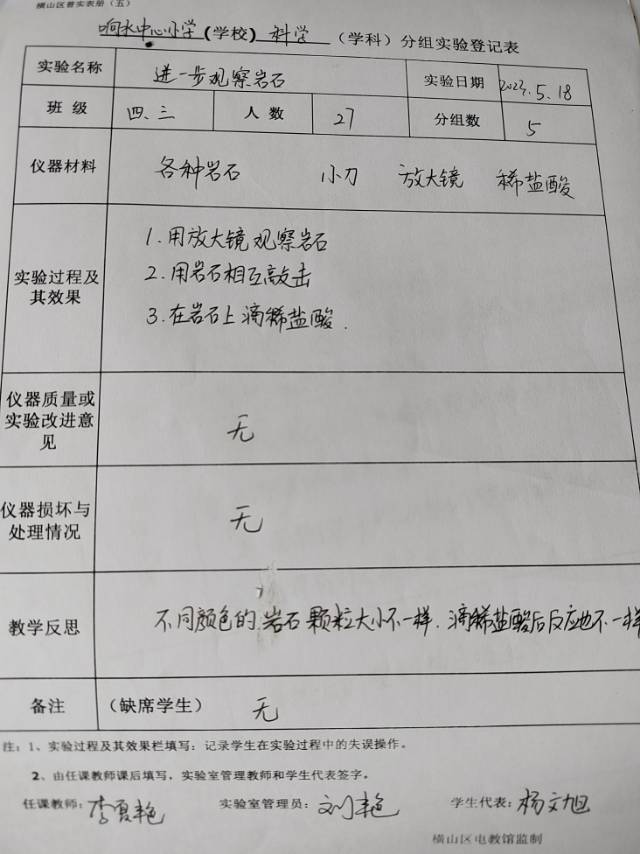 横山区普实表册（五）
响水中心小学（学校） 科学 （学科）分组实验登记表
实验名称 进一步观察岩石 实验日期 2023.5.18
班 级 四、三 人 数 27 分组数 5
仪器材料 各种岩石 小刀 放大镜 稀盐酸
实验过程及其效果
1.用放大镜观察岩石
2.用岩石相互敲击
3.在岩石上滴稀盐酸.
仪器质量或实验改进意见 无
仪器损坏与处理情况 无
教学反思 不同颜色的岩石颗粒大小不一样.滴稀盐酸后反应也不一样
备注 （缺席学生） 无
注：1、实验过程及其效果栏填写：记录学生在实验过程中的失误操作。
2、由任课教师课后填写，实验室管理教师和学生代表签字。
任课教师：李夏艳 实验室管理员：刘艳 学生代表：杨文旭
横山区电教馆监制